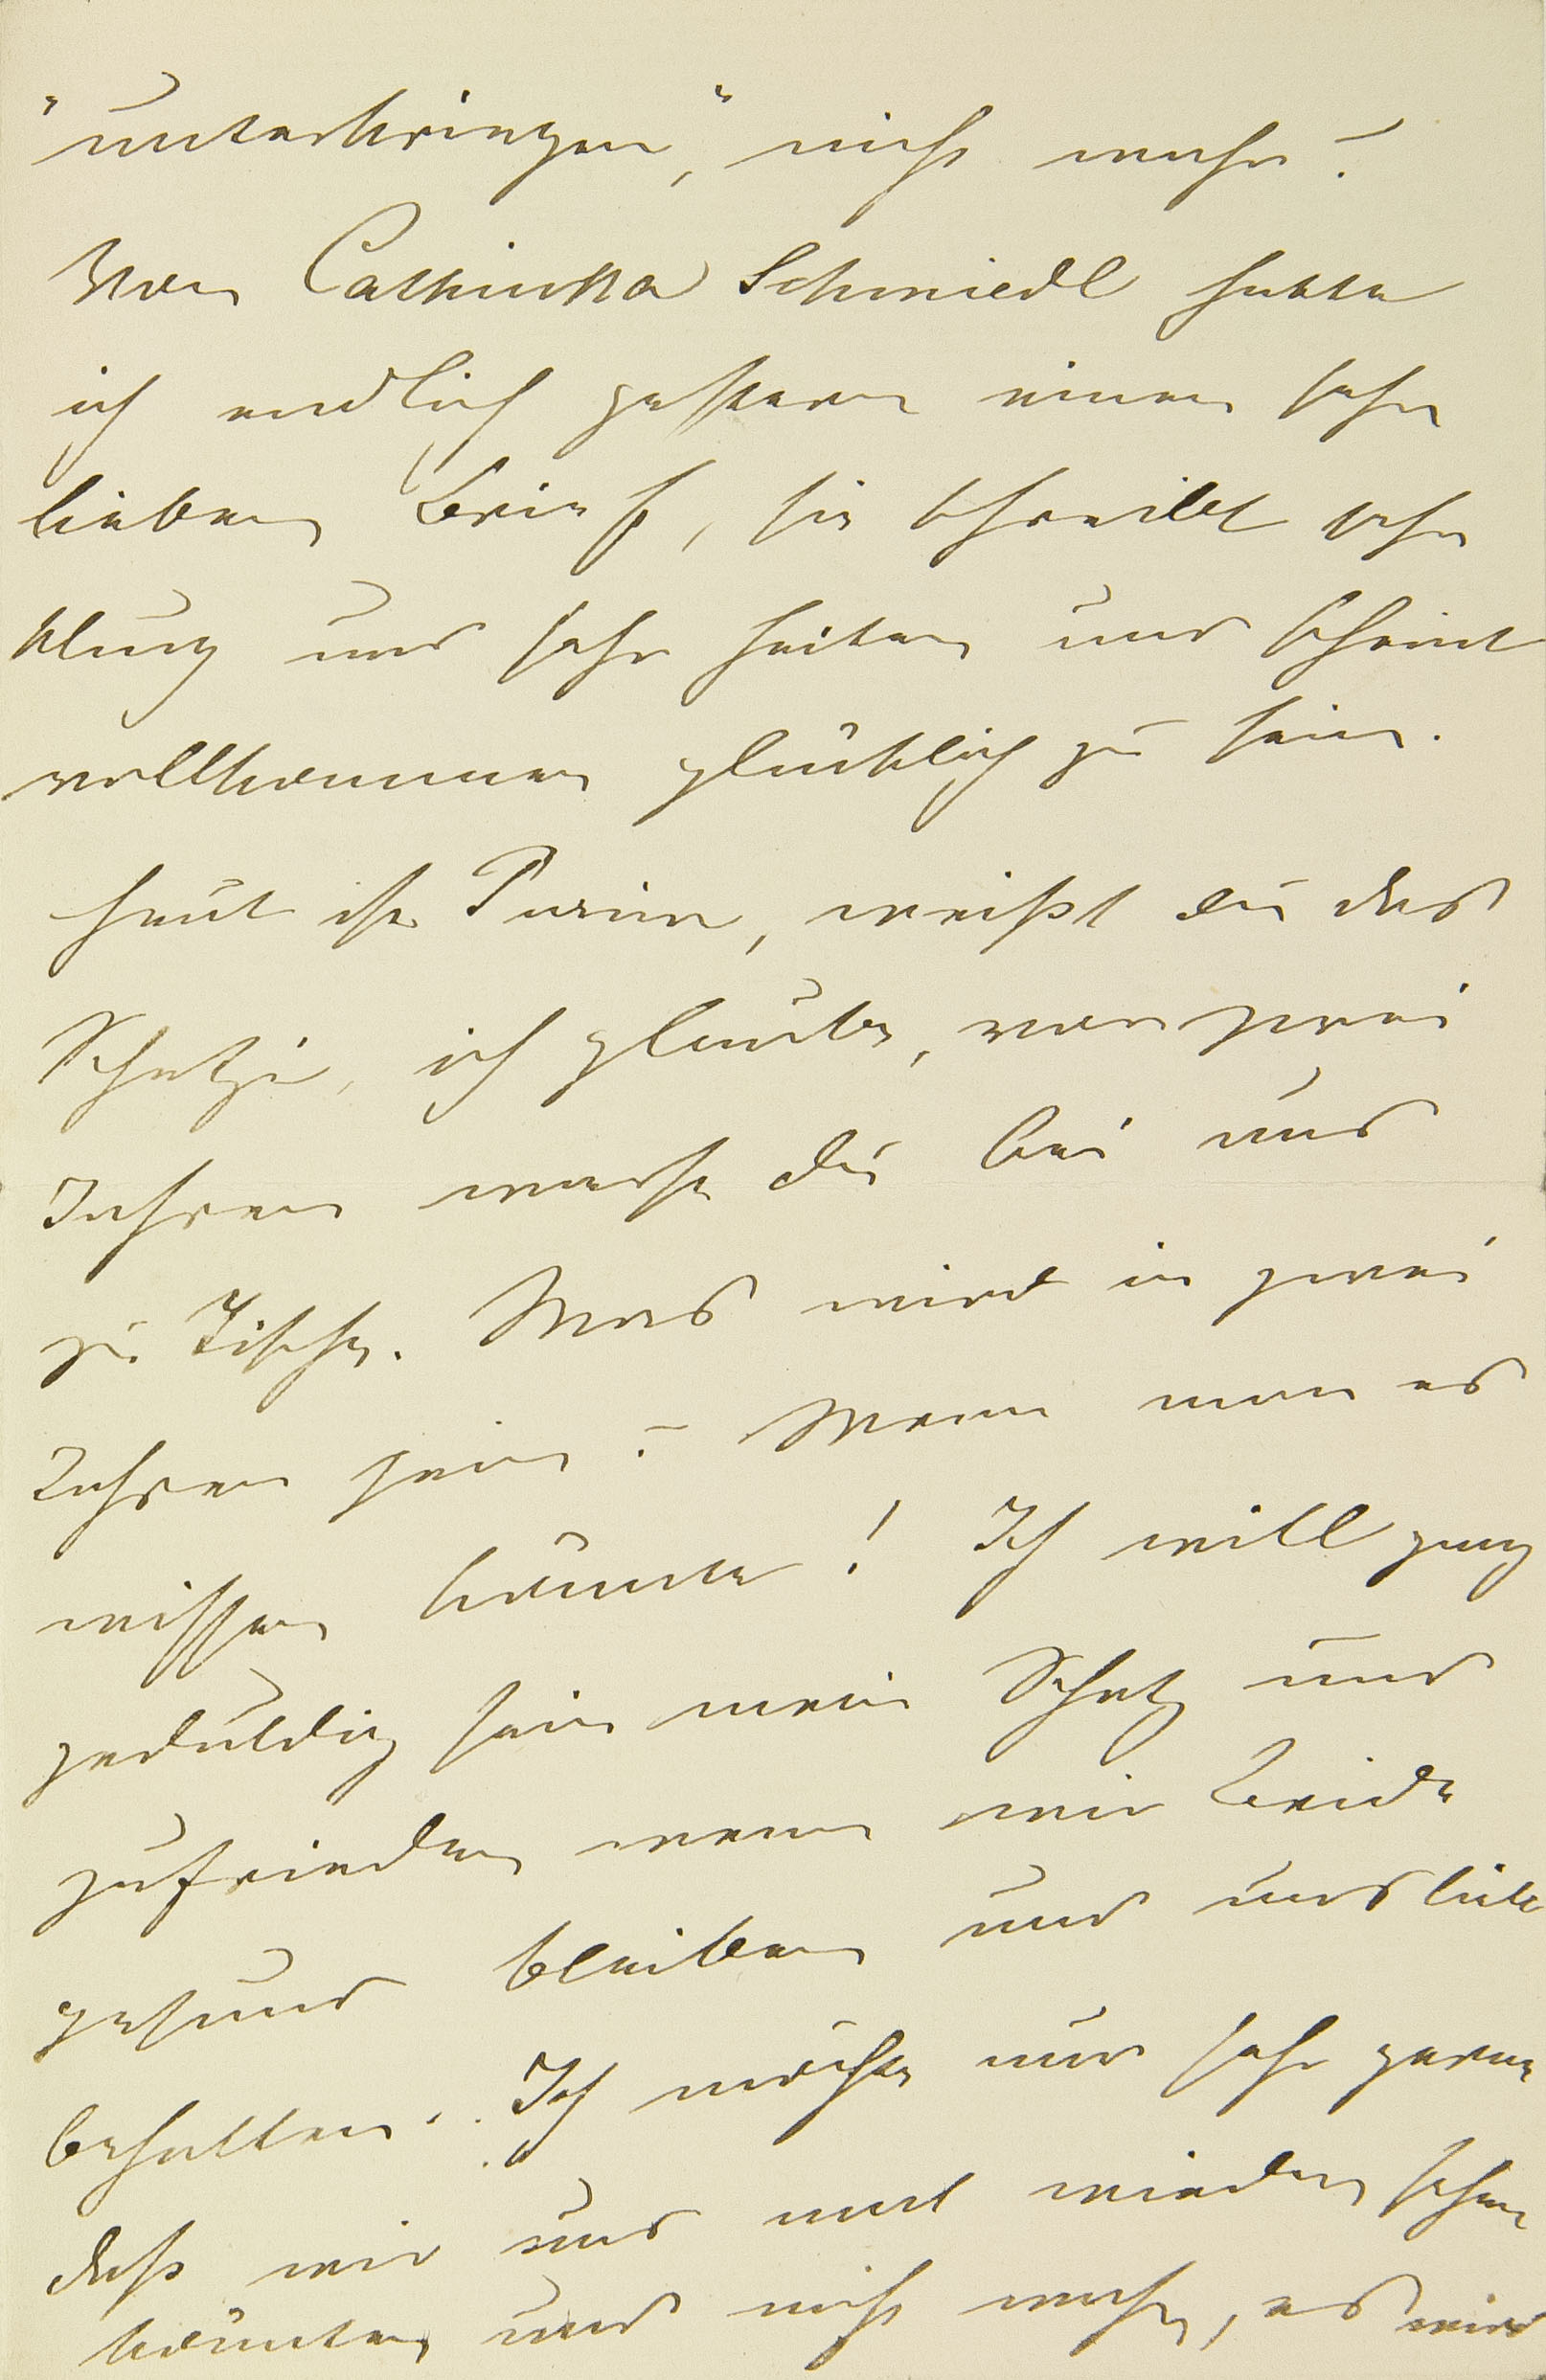 "unterbringen", nicht wahr?
Von Cathinka Schmiedl hatte
ich endlich gestern einen sehr
lieben Brief, sie schreibt sehr
klug und sehr heiter und scheint
vollkommen glücklich zu sein.
Heut ist Purim, weißt du das
Schatzi, ich glaube, vor zwei
Jahren warst du bei uns
zu Tische. Was wird in zwei
Jahren sein? Wenn man es
wissen könnte! Ich will ganz
geduldig sein mein Schatz und
zufrieden wenn wir Beide
gesund bleiben und uns lieb
behalten. Ich möchte nur sehr gerne
daß wir uns mal wieder sehen
könnten und nicht wahr, es wird